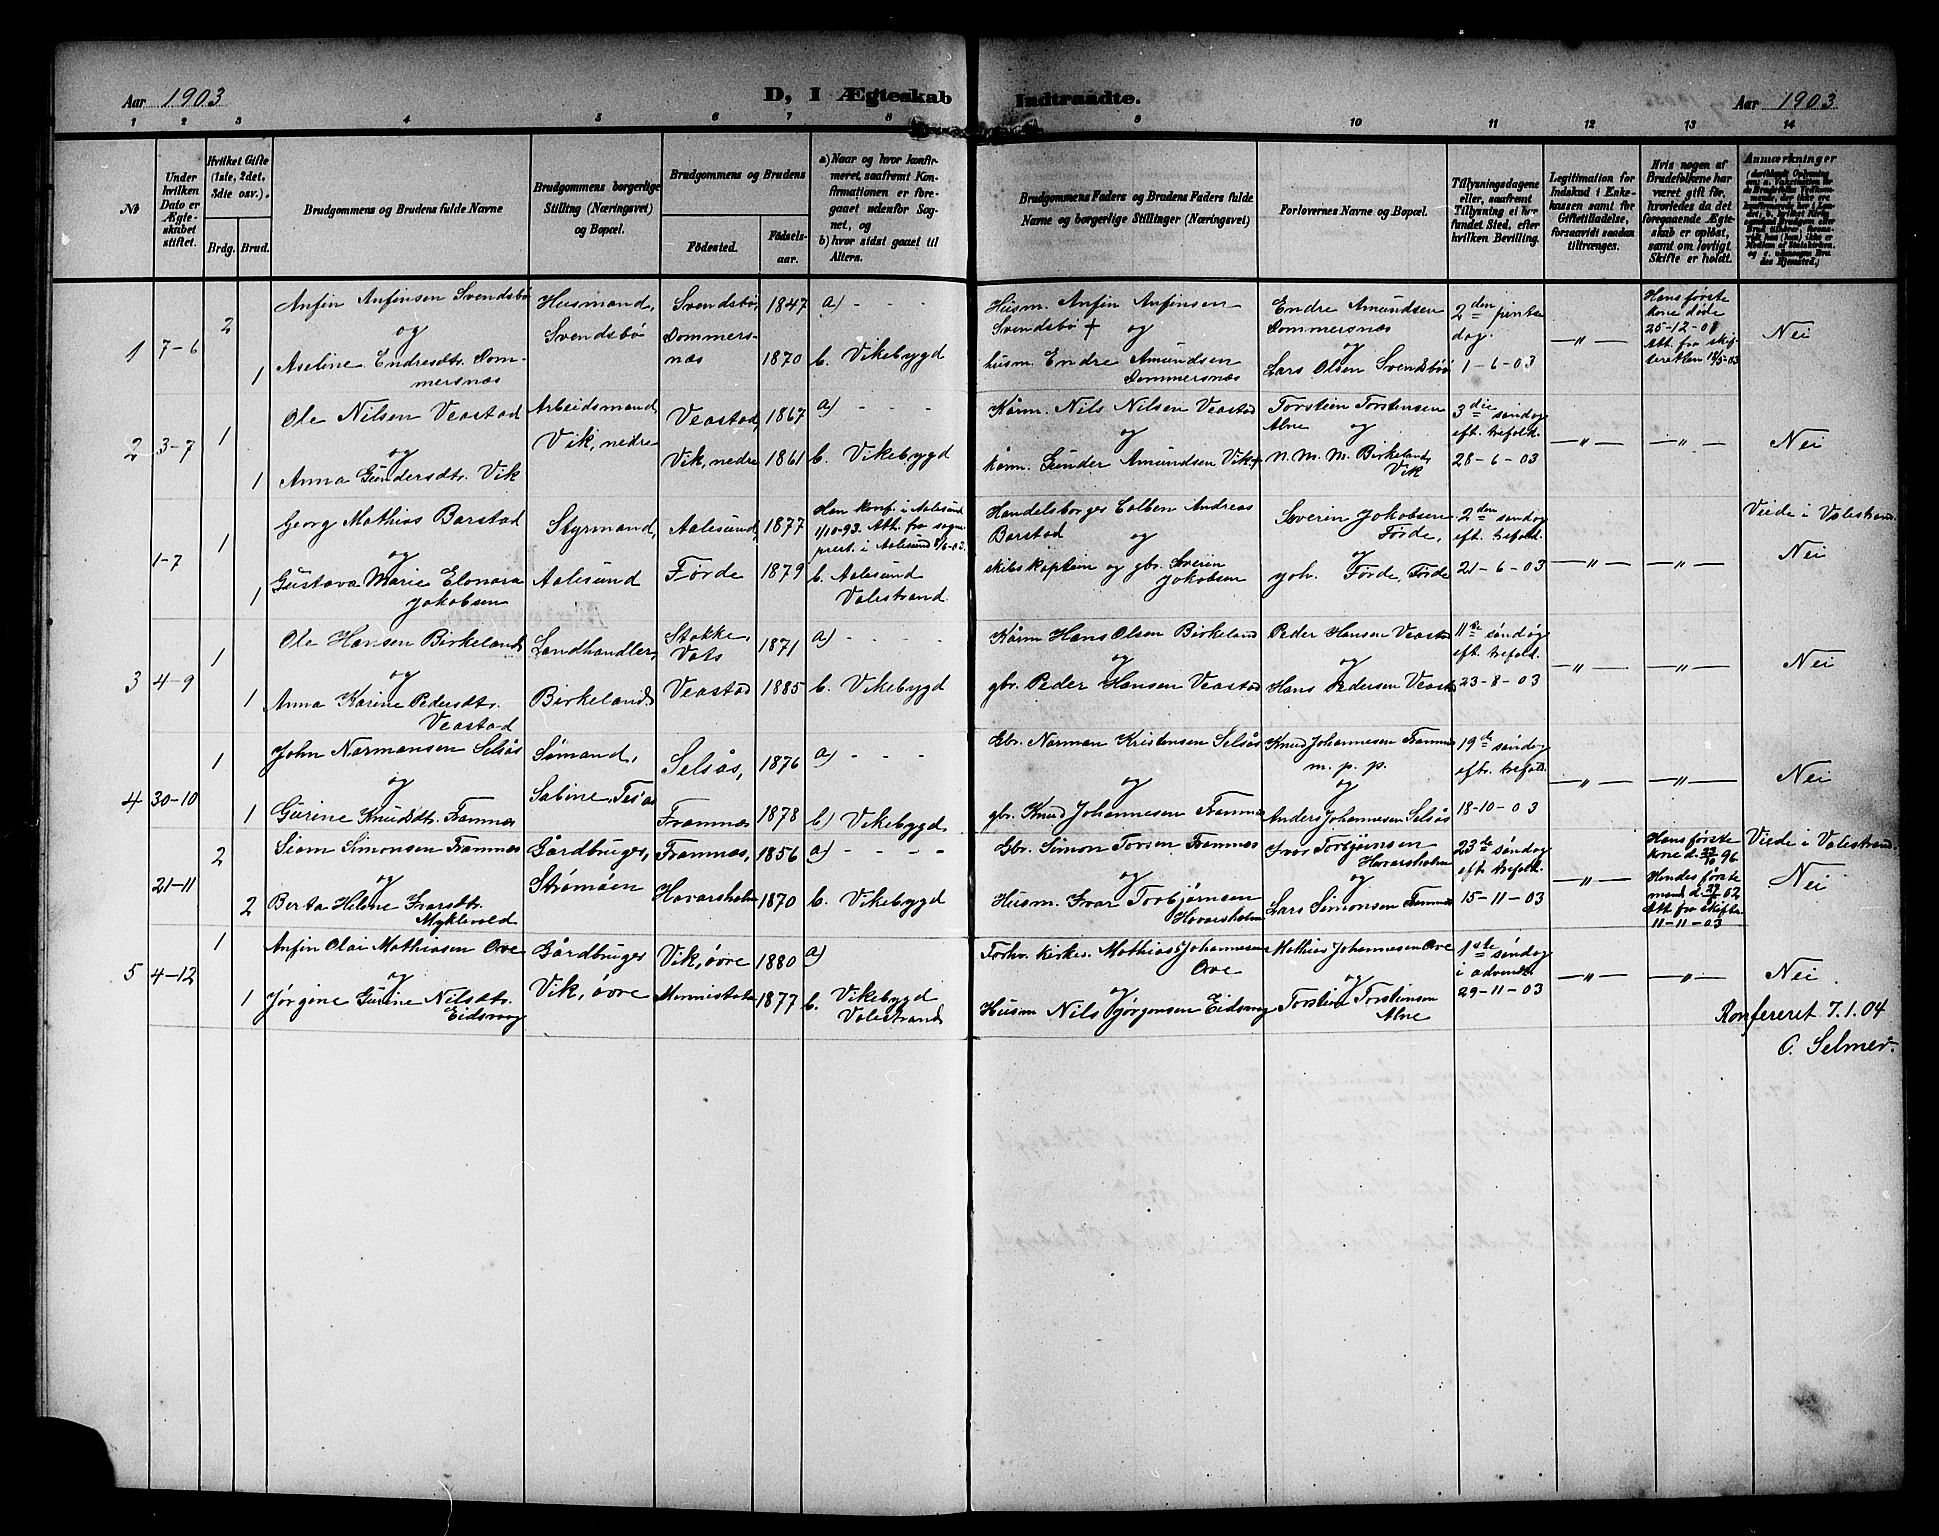 Aar 1903
D, I Ægteskab Indtraadte.
Aar 1903
1 2 3 4 5 6 7 8 9 10 11 12 13 14
№
Under hvilken Dato er Ægteskabet stiftet.
Hvilket Gifte (1ste, 2det, 3die osv.).
Brdg. Brud.
Brudgommens og Brudens fulde Navne
Brudgommens borgerlige Stilling (Næringsvei) og Bopæl.
Brudgommens og Brudens
Födested.
Födselsaar.
a) Naar og hvor konfirmeret, saafremt Konfirmationen er foregaaet udenfor Sognet, og
b) hvor sidst gaaet til Alters.
Brudgommens Faders og Brudens Faders fulde Navne og borgerlige Stillinger (Næringsvei)
Forlovernes Navne og Bopæl.
Tillysningsdagene eller, saafremt Tillysning ei har fundet Sted, efter hvilken Bevilling.
Legitimation for Indskud i Enkekassen samt for Giftetilladelse, forsaavidt saadan tiltrænges.
Hvis nogen af Brudefolkene har været gift før, hvorledes da det foregaaende Ægteskab er opløst, samt om lovligt Skifte er holdt.
Anmærkninger
1 7-6 2 Anfin Anfinsen Svendsbø Husmand, Svendsbø, 1847 a) - - -
og Svendsbø
1 Aseline Endresdtr. Dommersnæs Dommersnæs 1870 b. Vikebygd
Husm. Anfin Anfinsen Svendsbø + og
husm. Endre Amundsen Dommersnæs
Endre Amundsen Dommersnæs og
Lars Olsen Svendsbø
2den pintsedag. 1-6-03
—„— Hans første kone døde 25-12-01 Att. fra skifteretten 18/5-03 Nei
2 3-7 1 Ole Nilsen Vestad Arbeidsmand, Vestad, 1867 a) - - -
og Vik, nedre
1 Anna Gundersdtr. Vik Vik, nedre 1861 b. Vikebygd
Kårm. Nils Nilsen Vestad og
kårm. Gunder Amundsen Vik +
Torstein Torstensen Alne og
N. M. M. Birkeland, Vik
3die søndag eft. trefold. 28-6-03
—„— —„— Nei
1-7 1 Georg Mathias Barstad Styrmand, Aalesund, 1877 Han konf. i Aalesund 1/10-93. Att. fra sogneprest. i Aalesund 8/6-03.
og
1 Gustava Marie Elonora Jakobsen Aalesund Førde 1879 b. Aalesund Valestrand
Handelsborger Colben Andreas Barstad og
skibskaptein og gbr. Sverin Jakobsen
Severin Jakobsen Førde, og
Joh. Førde, Førde
2den søndag eft. trefold. 21-6-03
—„— —„— Viede i Valestrand. Nei
3 4-9 1 Ole Hansen Birkeland Landhandler, Stokke, Vats 1871 a) - - -
og
1 Anna Karine Pedersdtr. Vestad Birkeland Vestad 1885 b. Vikebygd
Kårm Hans Olsen Birkeland og
gbr. Peder Hansen Vestad
Peder Hansen Vestad og
Hans Pedersen Vestad
11te søndag eft. trefold. 23-8-03
—„— —„— Nei
4 30-10 1 John Normansen Selsås Sømand, Selsås, 1876 a) - - -
og
1 Gurine Knudsdtr. Framnæs Sabine, Framnæs 1878 b) Vikebygd
Gbr. Norman Kristensen Selsås og
gbr. Knud Johannesen Framnæs
Knud Johannesen Framnæs m. p. p. og
Anders Johannesen Selsås
19de søndag eftr. trefold. 18-10-03
—„— —„— Nei
21-11 2 Simon Simonsen Framnæs Gårdbruger, Framnæs, 1856 a) - - - -
og Strømøen
2 Berta Helene Ivarsdtr. Myklevold Havarsholm 1870 b. Vikebygd
Gbr. Simon Torsen Framnæs og
Husm. Ivar Torbjørnsen Havarsholm
Ivar Torbjørnsen Havarsholm og
Lars Simonsen Framnæs
23de søndag eft trefold. 15-11-03
—„— Hans første kone d. 22/10 96 Hendes første mand d. 27/1 02 Att. fra skifter. 11-11-03 Viede i Valestrand. Nei
5 4-12 1 Anfin Olai Mathiasen Orve Gårdbruger Vik, øvre 1880 a)
og Vik, øvre
1 Jørgine Gurine Nilsdtr. Eidsvag 1877 b. Vikebygd Valestrand
Forhv. kirkes. Mathias Johannesen Orve og
Husm Nils Jørgensen Eidsvag
Mathias Johannesen Orve og
Torstein Torstensen Alne
1ste søndag i advent 29-11-03
—„— —„— Nei
Konfereret 7.1.04
O. Selmer.